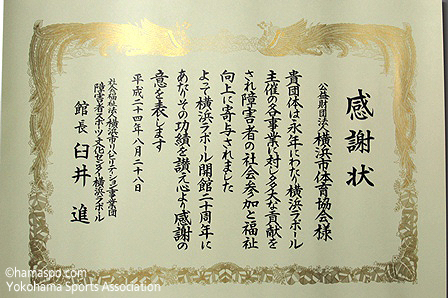 感謝状
公益財団法人横浜市体育協会様
貴団体は永年にわたり横浜ラポール
主催の各事業に対し多大な貢献を
され障害者の社会参加と福祉
向上に寄与されました
よって横浜ラポール開館二十周年に
あたりその功績を讃え心より感謝の
意を表します
平成二十四年八月二十八日
社会福祉法人横浜市リハビリテーション事業団
障害者スポーツ文化センター横浜ラポール
館長 臼井 進
©hamaspo.com
Yokohama Sports Association